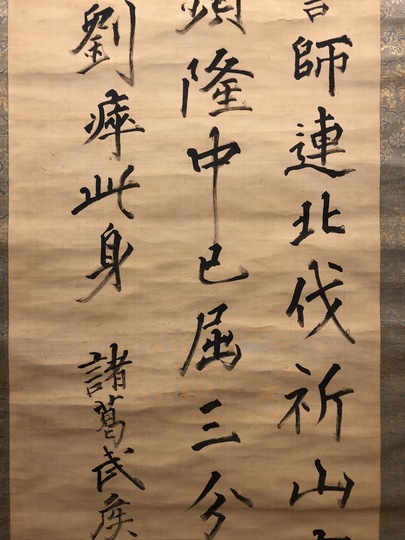 師連北伐祈山
隆中已屈三分
劉瘁此身 諸葛武侯